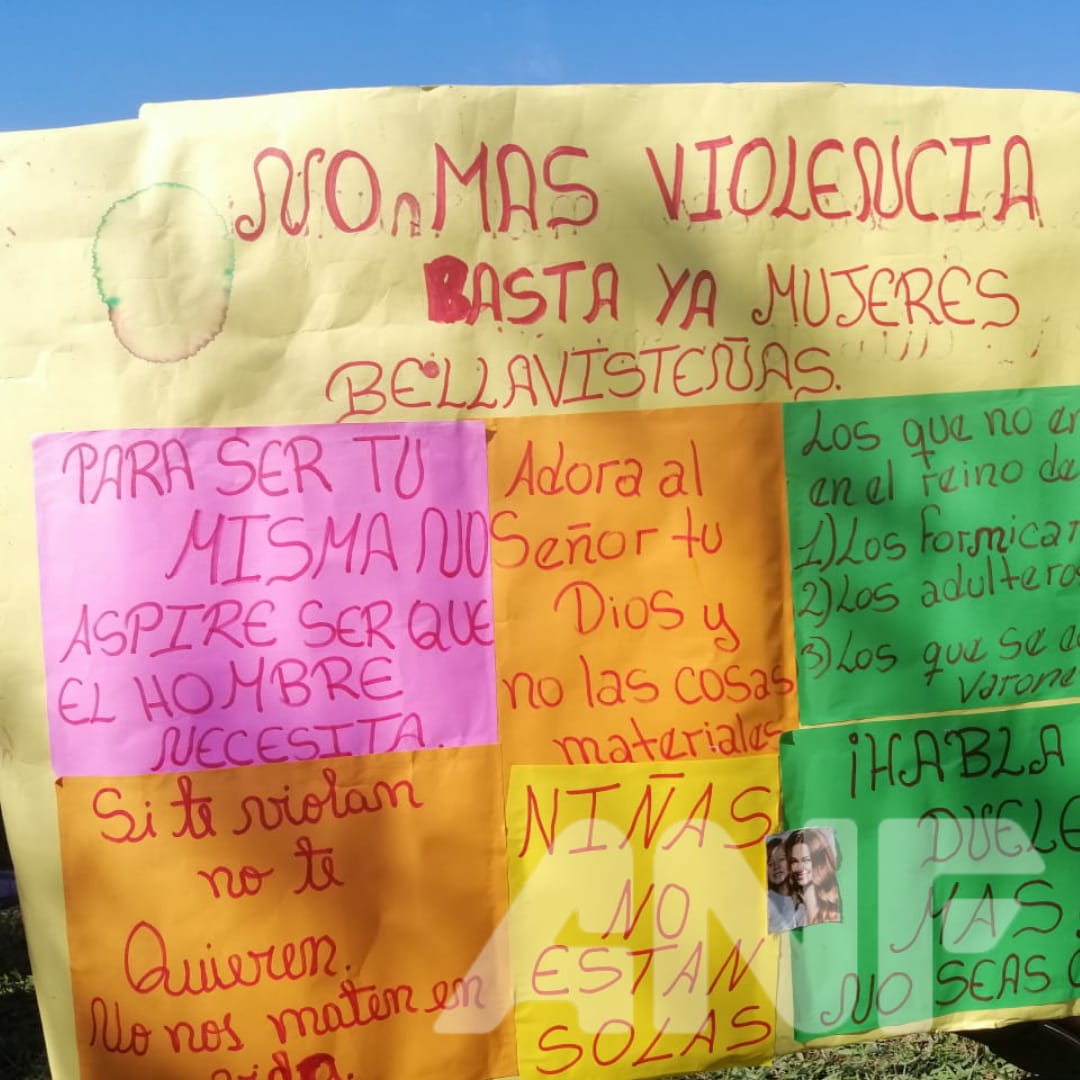 NO MAS VIOLENCIA
BASTA YA MUJERES
BELLAVISTEÑAS.
PARA SER TU
MISMA NO
ASPIRE SER QUE
EL HOMBRE
NECESITA.
Adora al
Señor tu
Dios y
no las cosas
materiales
Los que no
en el reino de
1) Los formicar
2) Los adulteros
3) Los que se
varone
Si te violan
no te
Quieren.
No nos maten en
vida.
NIÑAS
NO
ESTAN
SOLAS
¡HABLA
DUELE
MAS
NO SEAS
ANF